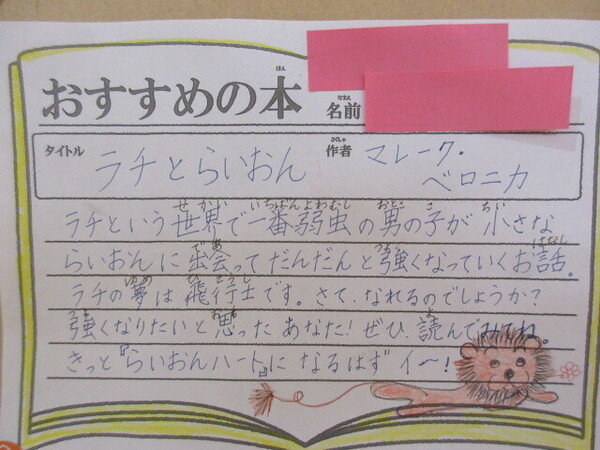 おすすめの本 名前
タイトル ラチとらいおん 作者 マレーク・ベロニカ
ラチという世界で一番弱虫の男の子が小さな
らいおんに出会ってだんだんと強くなっていくお話。
ラチの夢は飛行士です。さて、なれるのでしょうか？
強くなりたいと思ったあなた！ぜひ、読んでみてね。
きっと『らいおんハート』になるはずイ〜！